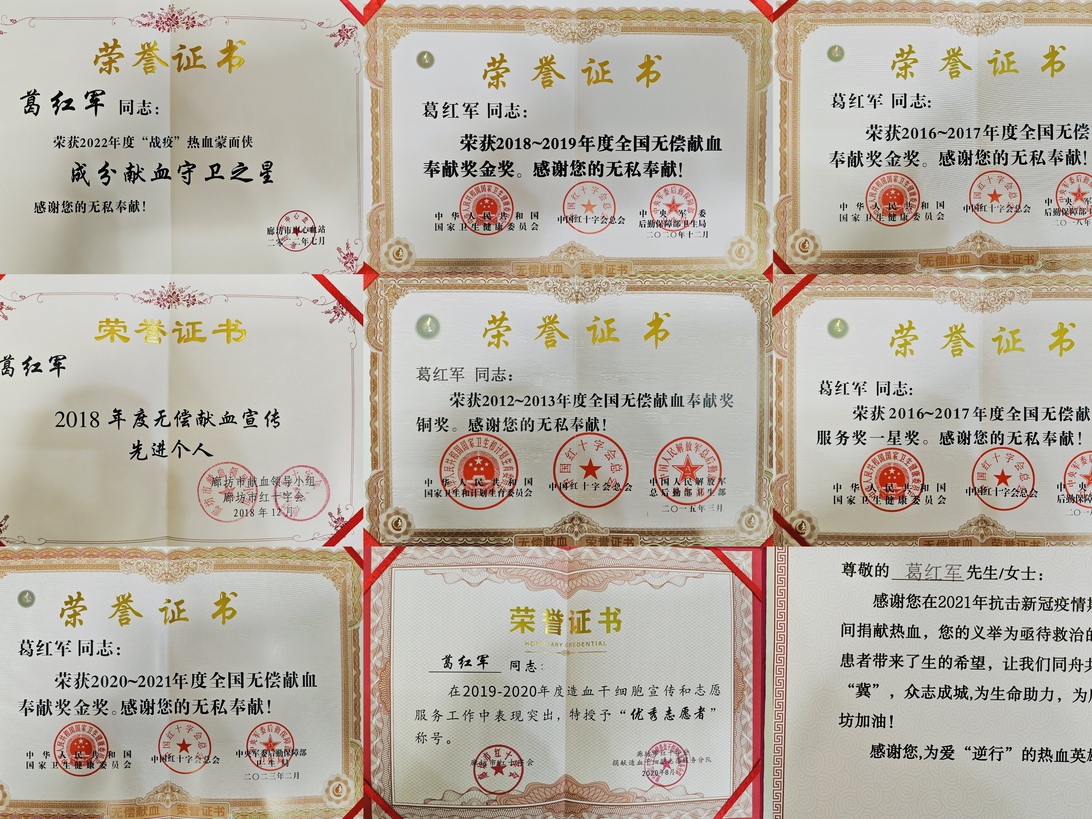 荣誉证书
葛红军 同志：
荣获2022年度“战疫”热血蒙面侠
成分献血守卫之星
感谢您的无私奉献！
廊坊市中心血站
年七月
荣誉证书
葛红军 同志：
荣获2018~2019年度全国无偿献血
奉献奖金奖。感谢您的无私奉献！
中华人民共和国
国家卫生健康委员会
中国红十字会总会
中央军委
后勤保障部卫生局
二〇二〇年十二月
无偿献血 荣誉证书
荣誉证书
葛红军 同志：
荣获2016~2017年度全国无偿
奉献奖金奖。感谢您的无私奉献！
中华人民共和国
国家卫生健康委员会
中国红十字会总会
中央军
后勤保障部
无偿献血 荣誉证书
荣誉证书
葛红军
2018 年度无偿献血宣传
先进个人
廊坊市献血领导小组
廊坊市红十字会
2018 年 12 月
荣誉证书
葛红军 同志：
荣获2012~2013年度全国无偿献血奉献奖
铜奖。感谢您的无私奉献！
中华人民共和国
国家卫生和计划生育委员会
中国红十字会总会
中国人民解放军
总后勤部卫生部
二〇一五年三月
无偿献血 荣誉证书
荣誉证书
葛红军 同志：
荣获2016~2017年度全国无偿献
服务奖一星奖。感谢您的无私奉献！
中华人民共和国
国家卫生健康委员会
中国红十字会总会
无偿献血 荣誉证书
荣誉证书
葛红军 同志：
荣获2020~2021年度全国无偿献血
奉献奖金奖。感谢您的无私奉献！
中华人民共和国
国家卫生健康委员会
中国红十字会总会
中央军委后勤保障部
卫生局
二〇二三年二月
无偿献血 荣誉证书
荣誉证书
HONORARY CREDENTIAL
葛红军 同志：
在2019-2020年度造血干细胞宣传和志愿
服务工作中表现突出，特授予“优秀志愿者”
称号。
廊坊市红十字会
廊坊市红十字会
捐献造血干细胞志愿服务分队
2020年8月
尊敬的 葛红军 先生/女士：
感谢您在2021年抗击新冠疫情期
间捐献热血，您的义举为亟待救治的
患者带来了生的希望，让我们同舟共
“冀”，众志成城,为生命助力，为廊
坊加油！
感谢您,为爱“逆行”的热血英雄